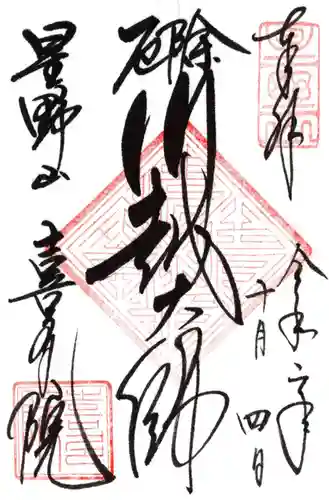 奉拝
令和六年
十月四日
厄除
川越大師
星野山
喜多院